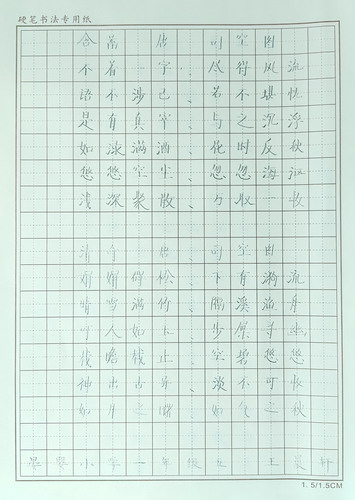 硬笔书法专用纸
含蓄 唐 司空图
不着一字、尽得风流
语不涉己、若不堪忧
是有真宰、与之沉浮
如渌满酒、花时反秋
悠悠空尘、忽忽海沤
浅深聚散、万取一收
清奇 唐 司空图
娟娟群松、下有漪流
晴雪满竹、隔溪渔舟
可人如玉、步屧寻幽
载瞻载止、空碧悠悠
神出古异、淡不可收
如月之曙、如气之秋
小学一年级 王
1.5/1.5CM